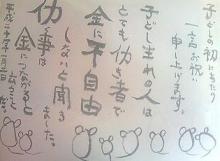 子どしの初めにあたり
一言お祝い
申し上げます。
子どし生れの人は
とても働き者で
金に不自由
しないと聞き
ました。
仂く事は
金につながると
平成二十年一月